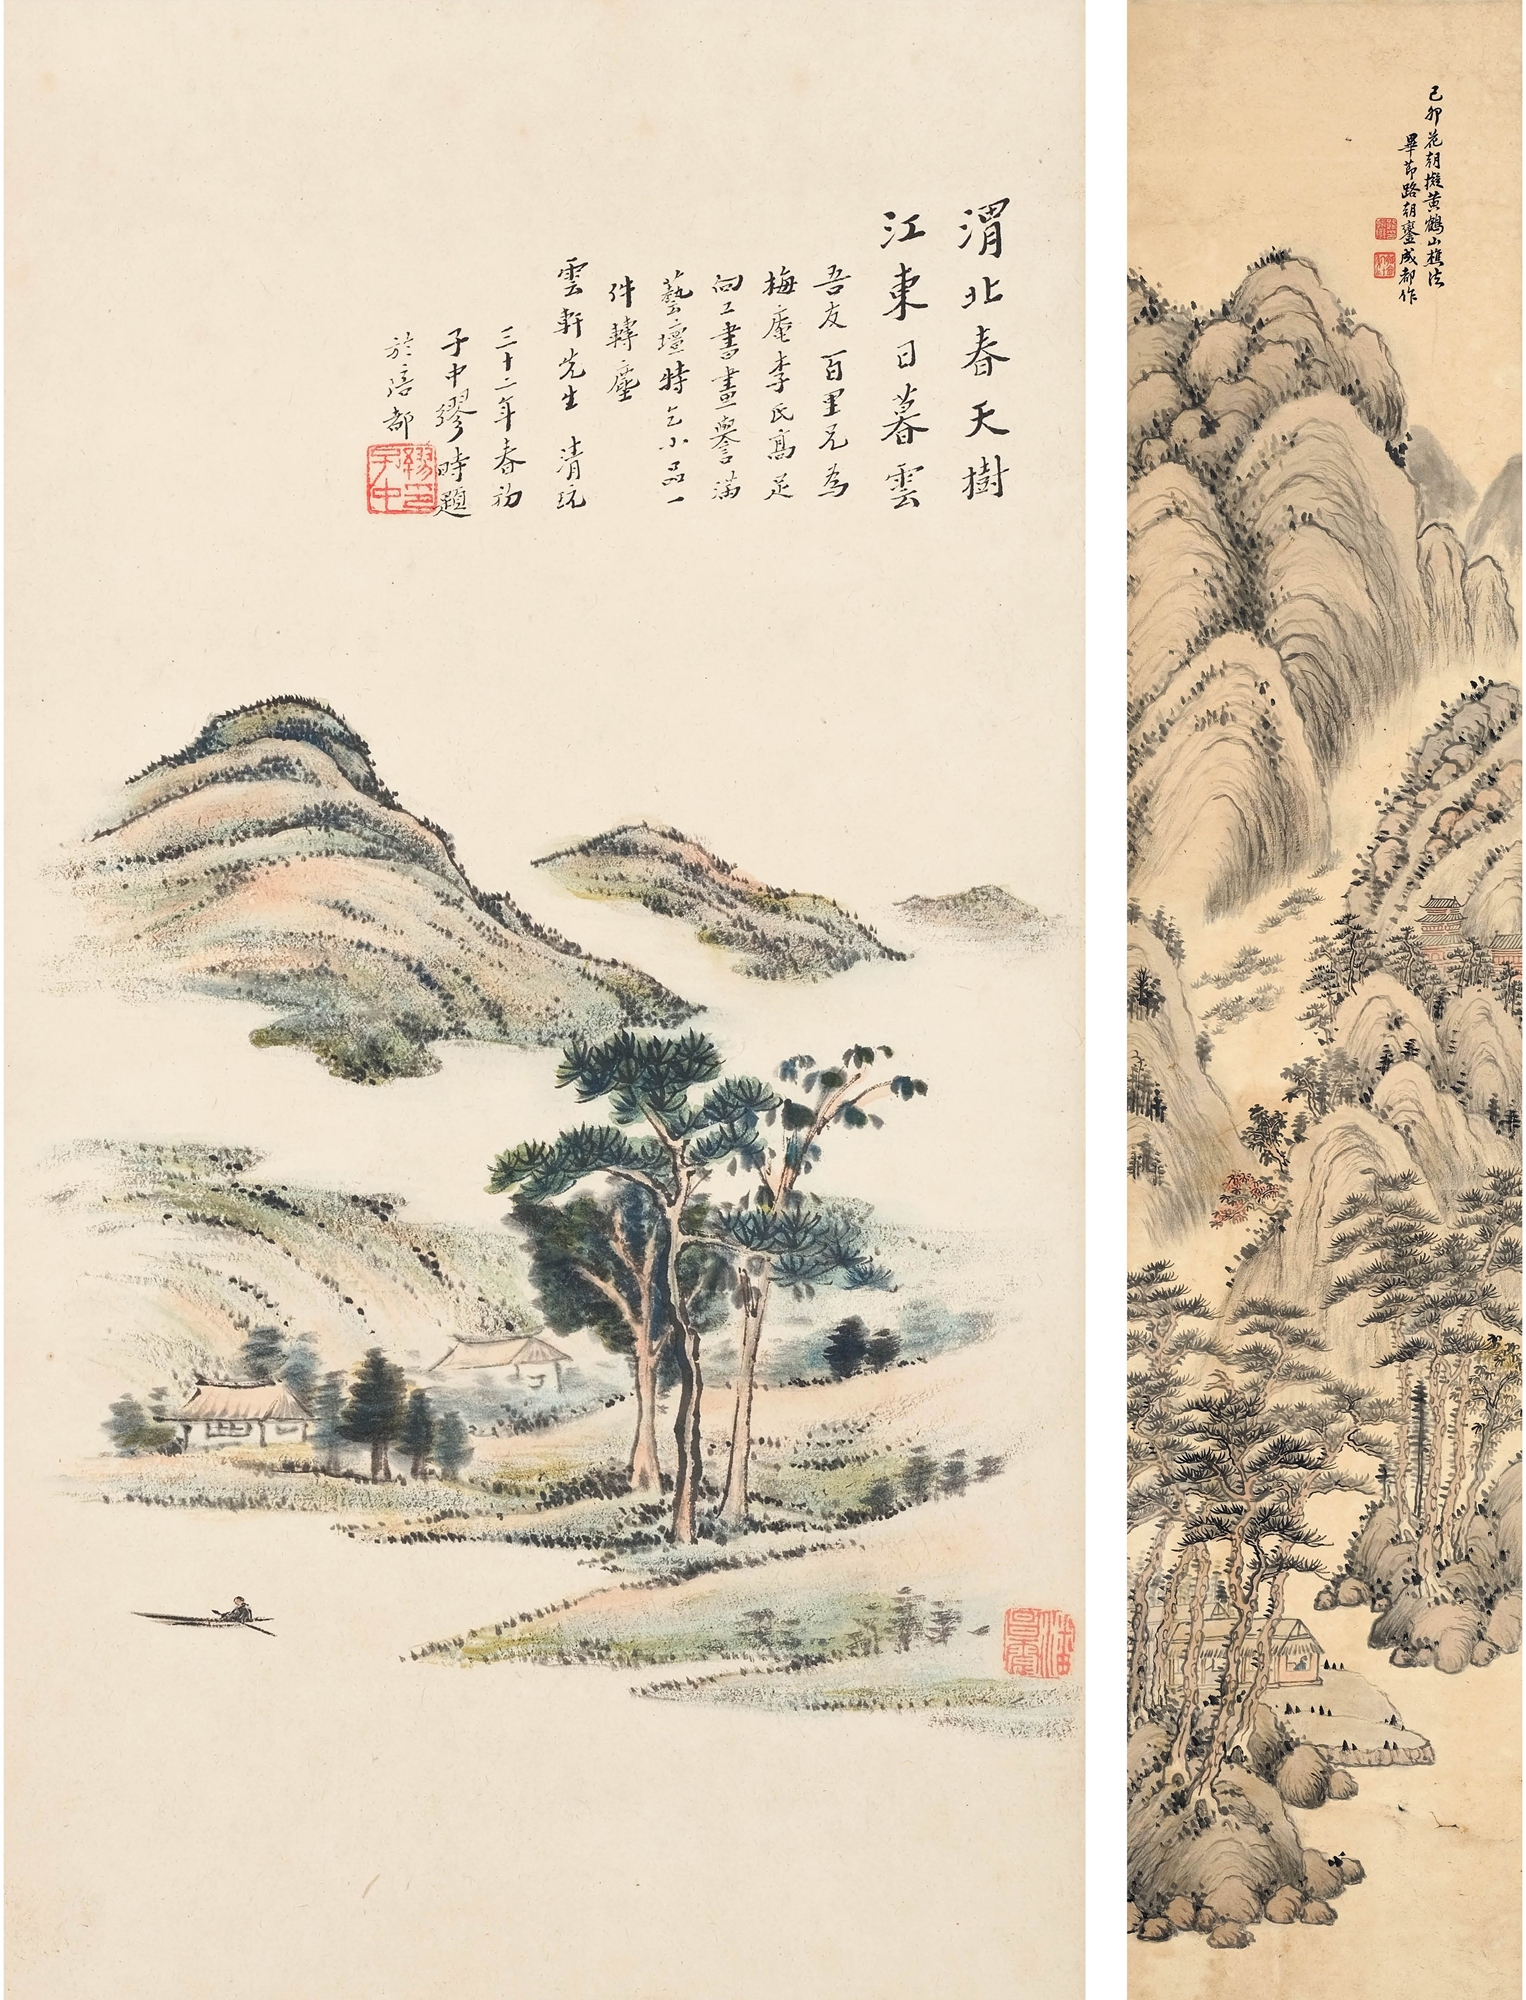 渭北春天樹
江東日暮雲
吾友百里兄為
梅庵李氏高足
向工書畫譽滿
藝壇特乞小品一
件轉塵
雲軒先生清玩
三十二年春初
子中繆時題
於陪都
繆子中印
己卯花朝擬黃鶴山樵法
畢節路朝鑾成都作